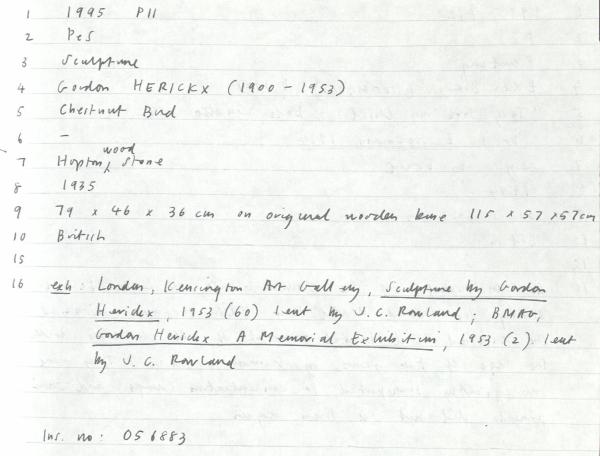 1 1995 P11
2 PeS
3 Sculpture
4 Gordon HERICKX (1900 - 1953)
5 Chestnut Bud
6 -
7 Hopton wood stone
8 1935
9 79 x 46 x 36 cm on original wooden base 115 x 57 x 57cm
10 British
15
16 exh: London, Kensington Art Gallery, Sculpture by Gordon
Herickx, 1953 (60) lent by J.C. Rowland; BMAG,
Gordon Herickx A Memorial Exhibition, 1953 (2). lent
by J.C. Rowland
Ins. no: 056883